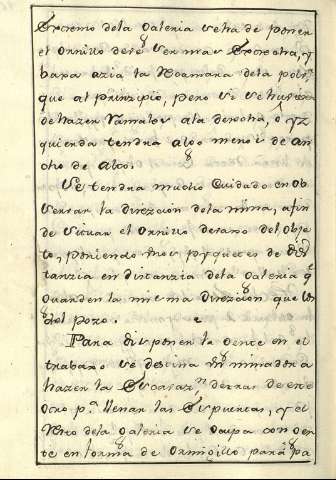 Extremo dela Galeria se ha de poner
el Ornillo debe ser mas Estrecha, y
baxa azia la Recamara dela pol.ª
que al Principio, pero si se hubiera
de hazer Ramales ala derecha, o yz
quierda tendra algo menos de an
cho de Alto.
Se tendra mucho Cuidado en ob
servar la direzcion dela mina, afin
de situar el Ornillo debaxo del obje
to, poniendo tres pyquetes de dis
tanzia en distanzia dela Galeria q.ᵉ
guarden la misma direzcion que
del pozo.
Para disponer la Gente en el
trabajo se destina Un minador a
hazer la Escavaz.ⁿ detras de este
otro p.ª llenar las Espuertas, y el
resto dela Galeria se ocupa con Gen
te en forma de Ormigillo para pa